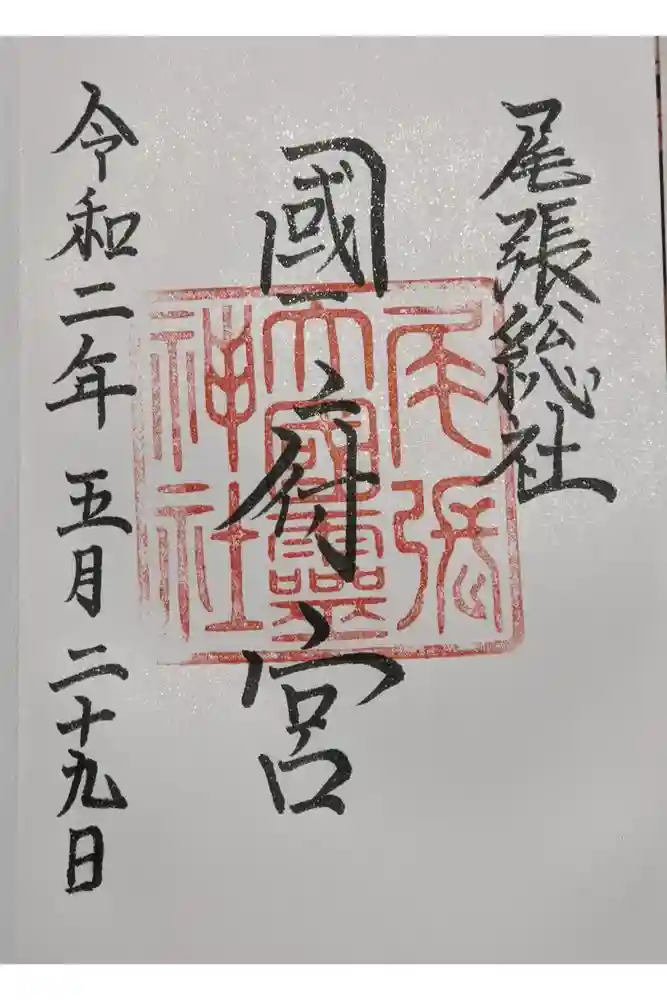 尾張総社
國府宮
尾張
大國靈
神社
令和二年五月二十九日